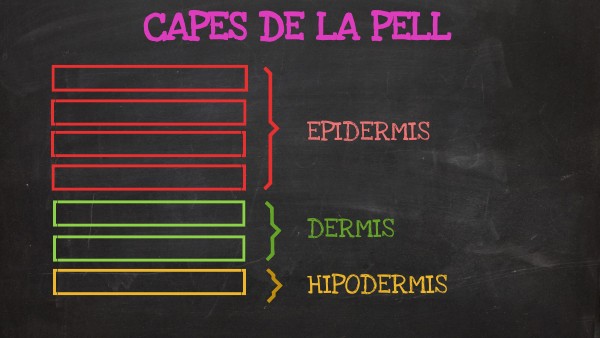 CAPES DE LA PELL
EPIDERMIS
DERMIS
HIPODERMIS